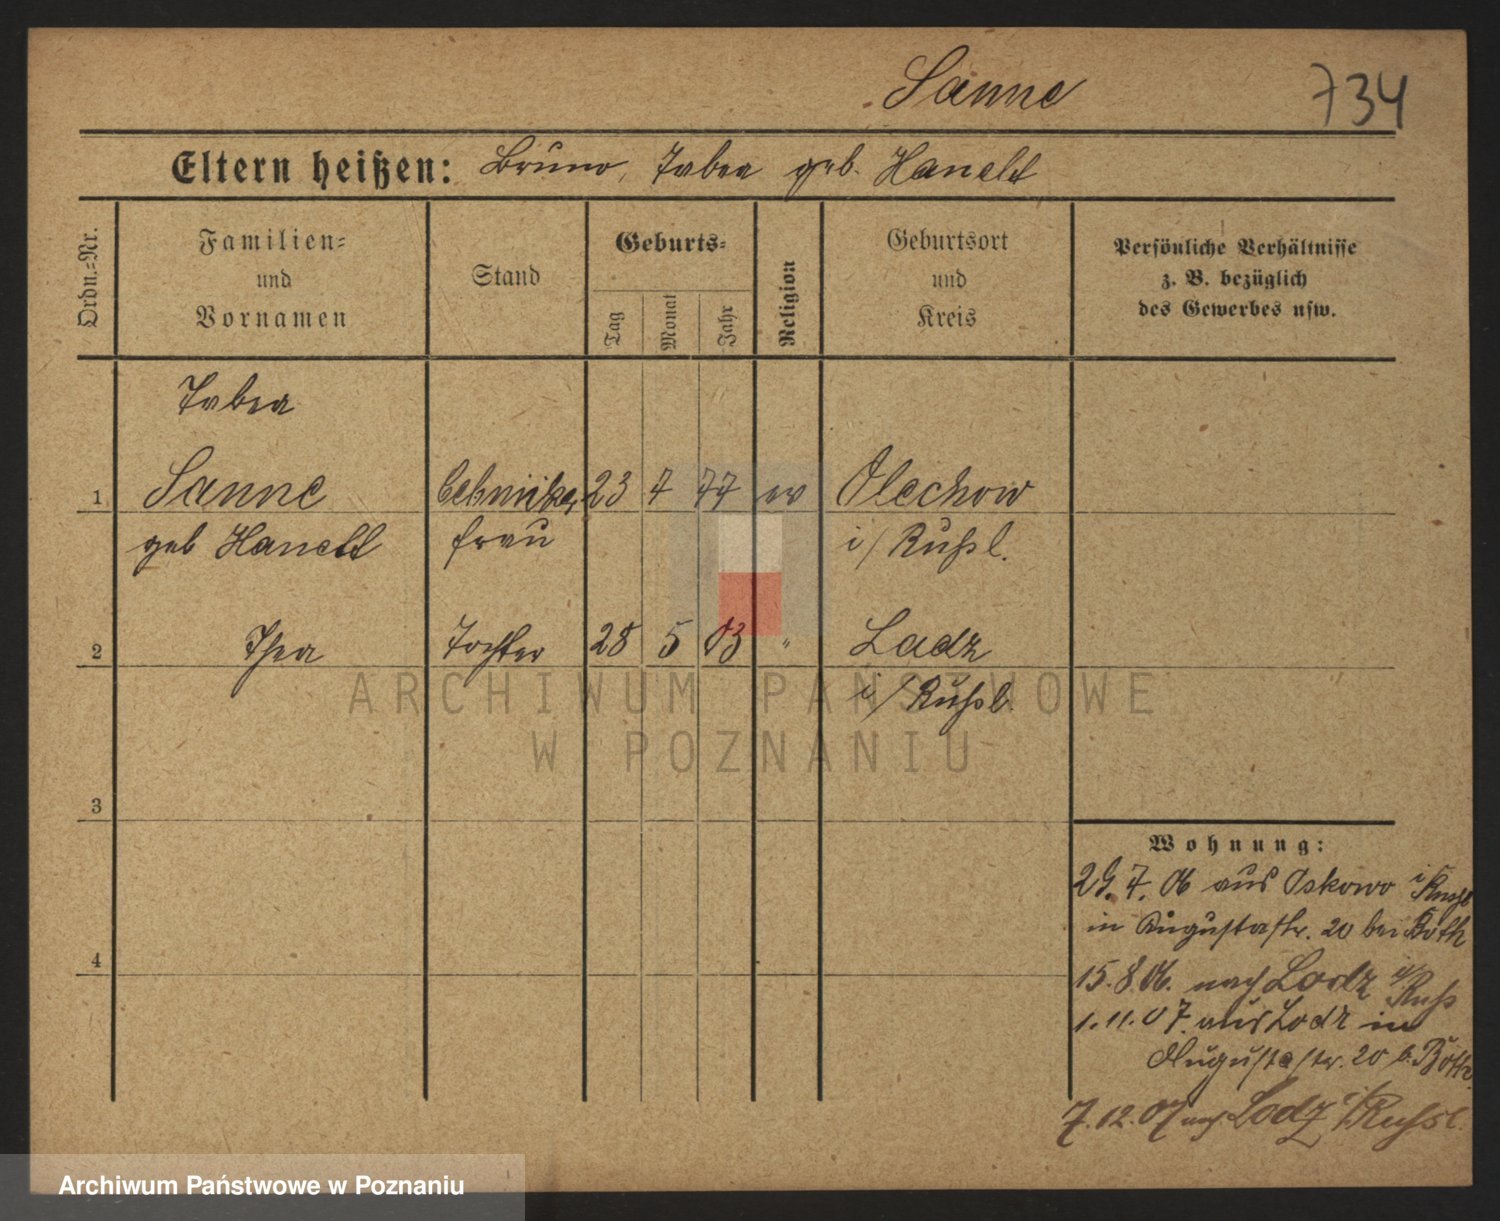 Sanne
734
Eltern heißen: Bruno, Tabea geb. Hanelt
Ordn.-Nr.
Familien-
und
Vornamen
Stand
Geburts-
Tag
Monat
Jahr
Religion
Geburtsort
und
Kreis
Persönliche Verhältnisse
z. B. bezüglich
des Gewerbes usw.
Tabea
1 Sanne 23 7 77 ev Olechow
geb Hanelt frau i/Rußl.
2 Thea Tochter 28 5 03 " Lodz
i/Rußl.
3
4
Wohnung:
29.7.06 aus Oskowo i/Rußl
in Augustastr. 20 bei Both
15.8.06. nach Lodz i/Ruß
1.11.07. aus Lodz in
Augustastr. 20 b. Both
7.12.07 nach Lodz i/Rußl.
ARCHIWUM PAŃSTWOWE
W POZNANIU
Archiwum Państwowe w Poznaniu